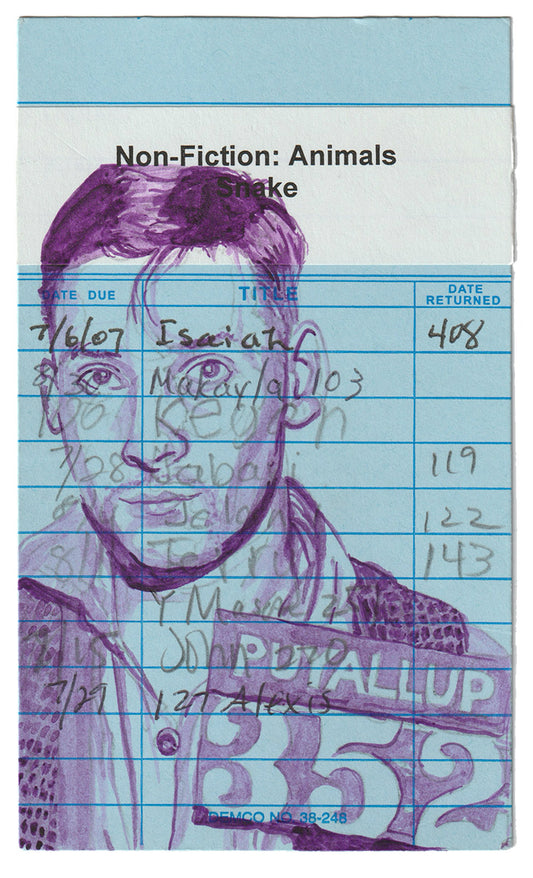 Non-Fiction: Animals
Snake
DATE DUE TITLE DATE RETURNED
7/6/07 Isaiah 408
Makayla 103
Kegan
7/08 Jabari 119
122
143
Y Mason
9/15 John 220
7/29 127 Alexis
PUYALLUP
352
DEMCO NO. 38-248